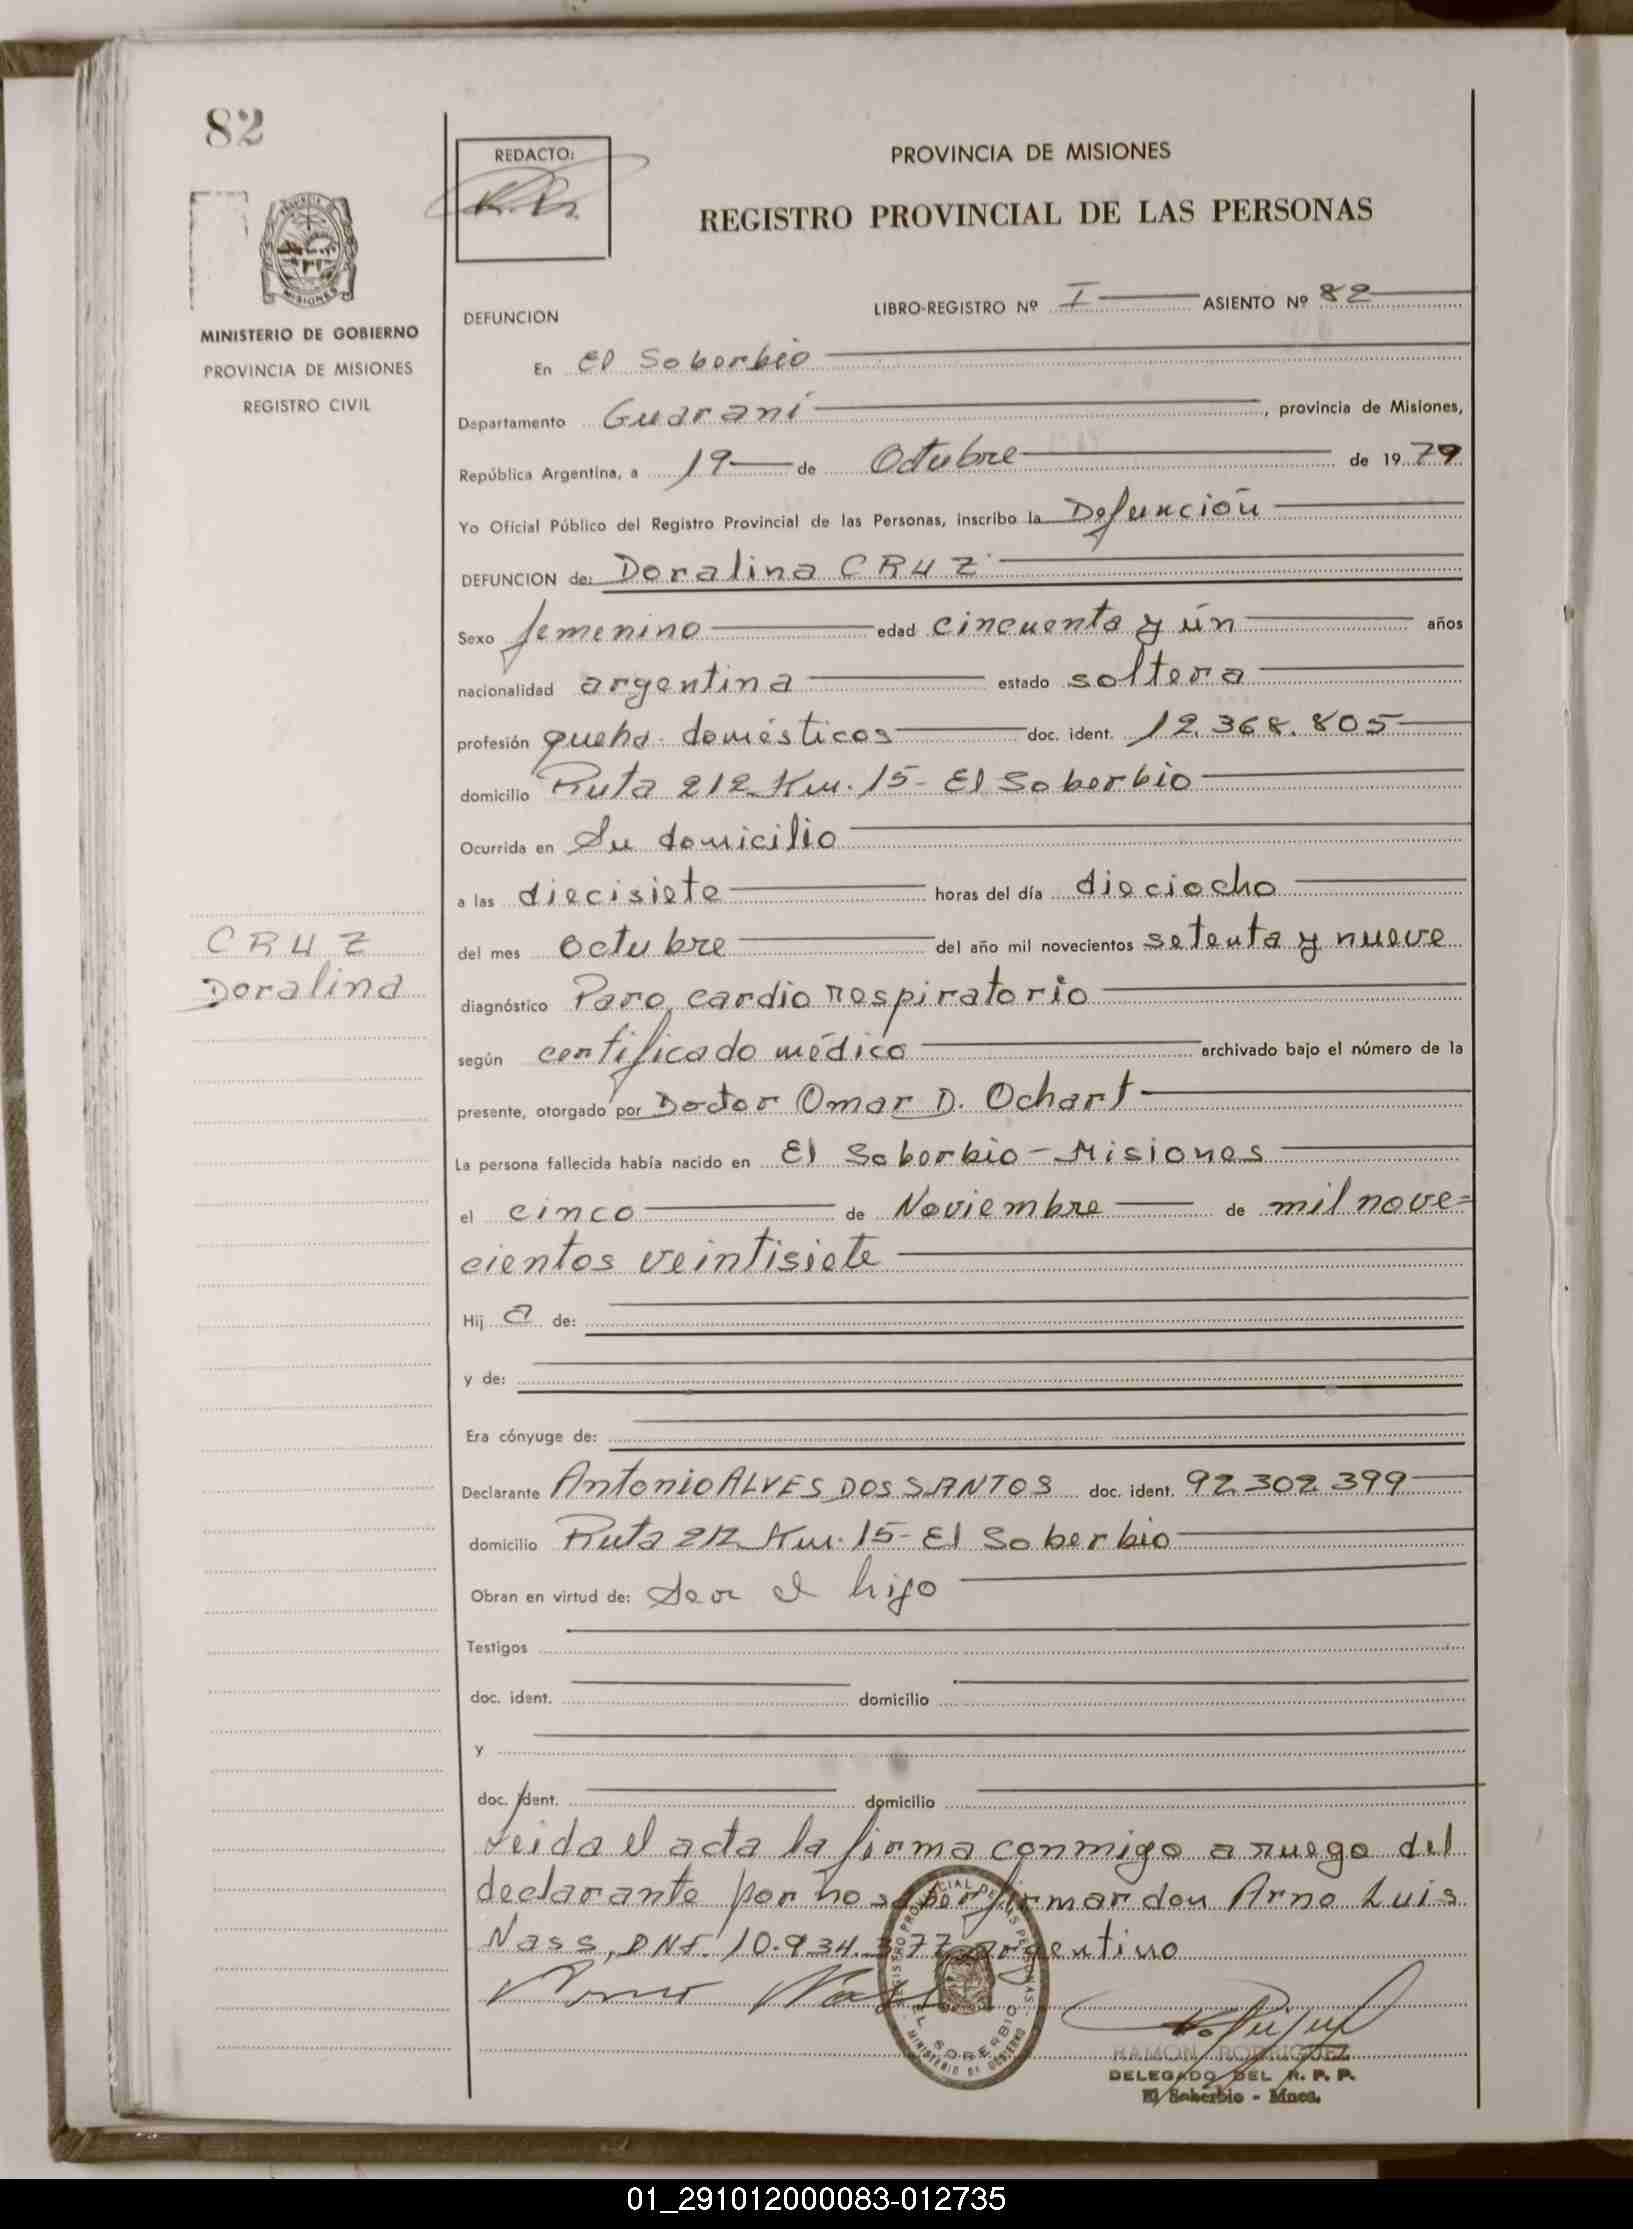 82
REDACTO:
PROVINCIA DE MISIONES
REGISTRO PROVINCIAL DE LAS PERSONAS
MINISTERIO DE GOBIERNO
PROVINCIA DE MISIONES
REGISTRO CIVIL
DEFUNCION LIBRO-REGISTRO Nº I ASIENTO Nº 82
En El Soberbio
Departamento Guaraní, provincia de Misiones,
República Argentina, a 19 de Octubre de 1979
Yo Oficial Público del Registro Provincial de las Personas, inscribo la Defunción
DEFUNCION de: Doralina CRUZ
Sexo femenino edad cincuenta y ún años
nacionalidad argentina estado soltera
profesión queha. domésticos doc. ident. 12.368.805
domicilio Ruta 212 Km. 15- El Soberbio
Ocurrida en Su domicilio
a las diecisiete horas del día dieciocho
CRUZ
Doralina
del mes octubre del año mil novecientos setenta y nueve
diagnóstico Paro cardio respiratorio
según certificado médico archivado bajo el número de la
presente, otorgado por Doctor Omar D. Ochart
La persona fallecida había nacido en El Soberbio - Misiones
el cinco de Noviembre de mil nove=
cientos veintisiete
Hija de:
y de:
Era cónyuge de:
Declarante Antonio ALVES DOS SANTOS doc. ident. 92.302.399
domicilio Ruta 212 Km. 15- El Soberbio
Obran en virtud de: Ser el hijo
Testigos
doc. ident. domicilio
y
doc. ident. domicilio
Leida el acta la firma conmigo a ruego del
declarante por no saber firmar don Arno Luis
Nass, DNI. 10.934.377, argentino
Arno Nass
REGISTRO PROVINCIAL DE LAS PERSONAS
EL SOBERBIO
MINISTERIO DE GOBIERNO
RAMON RODRIGUEZ
DELEGADO DEL R. P. P.
El Soberbio - Mnes.
01_291012000083-012735